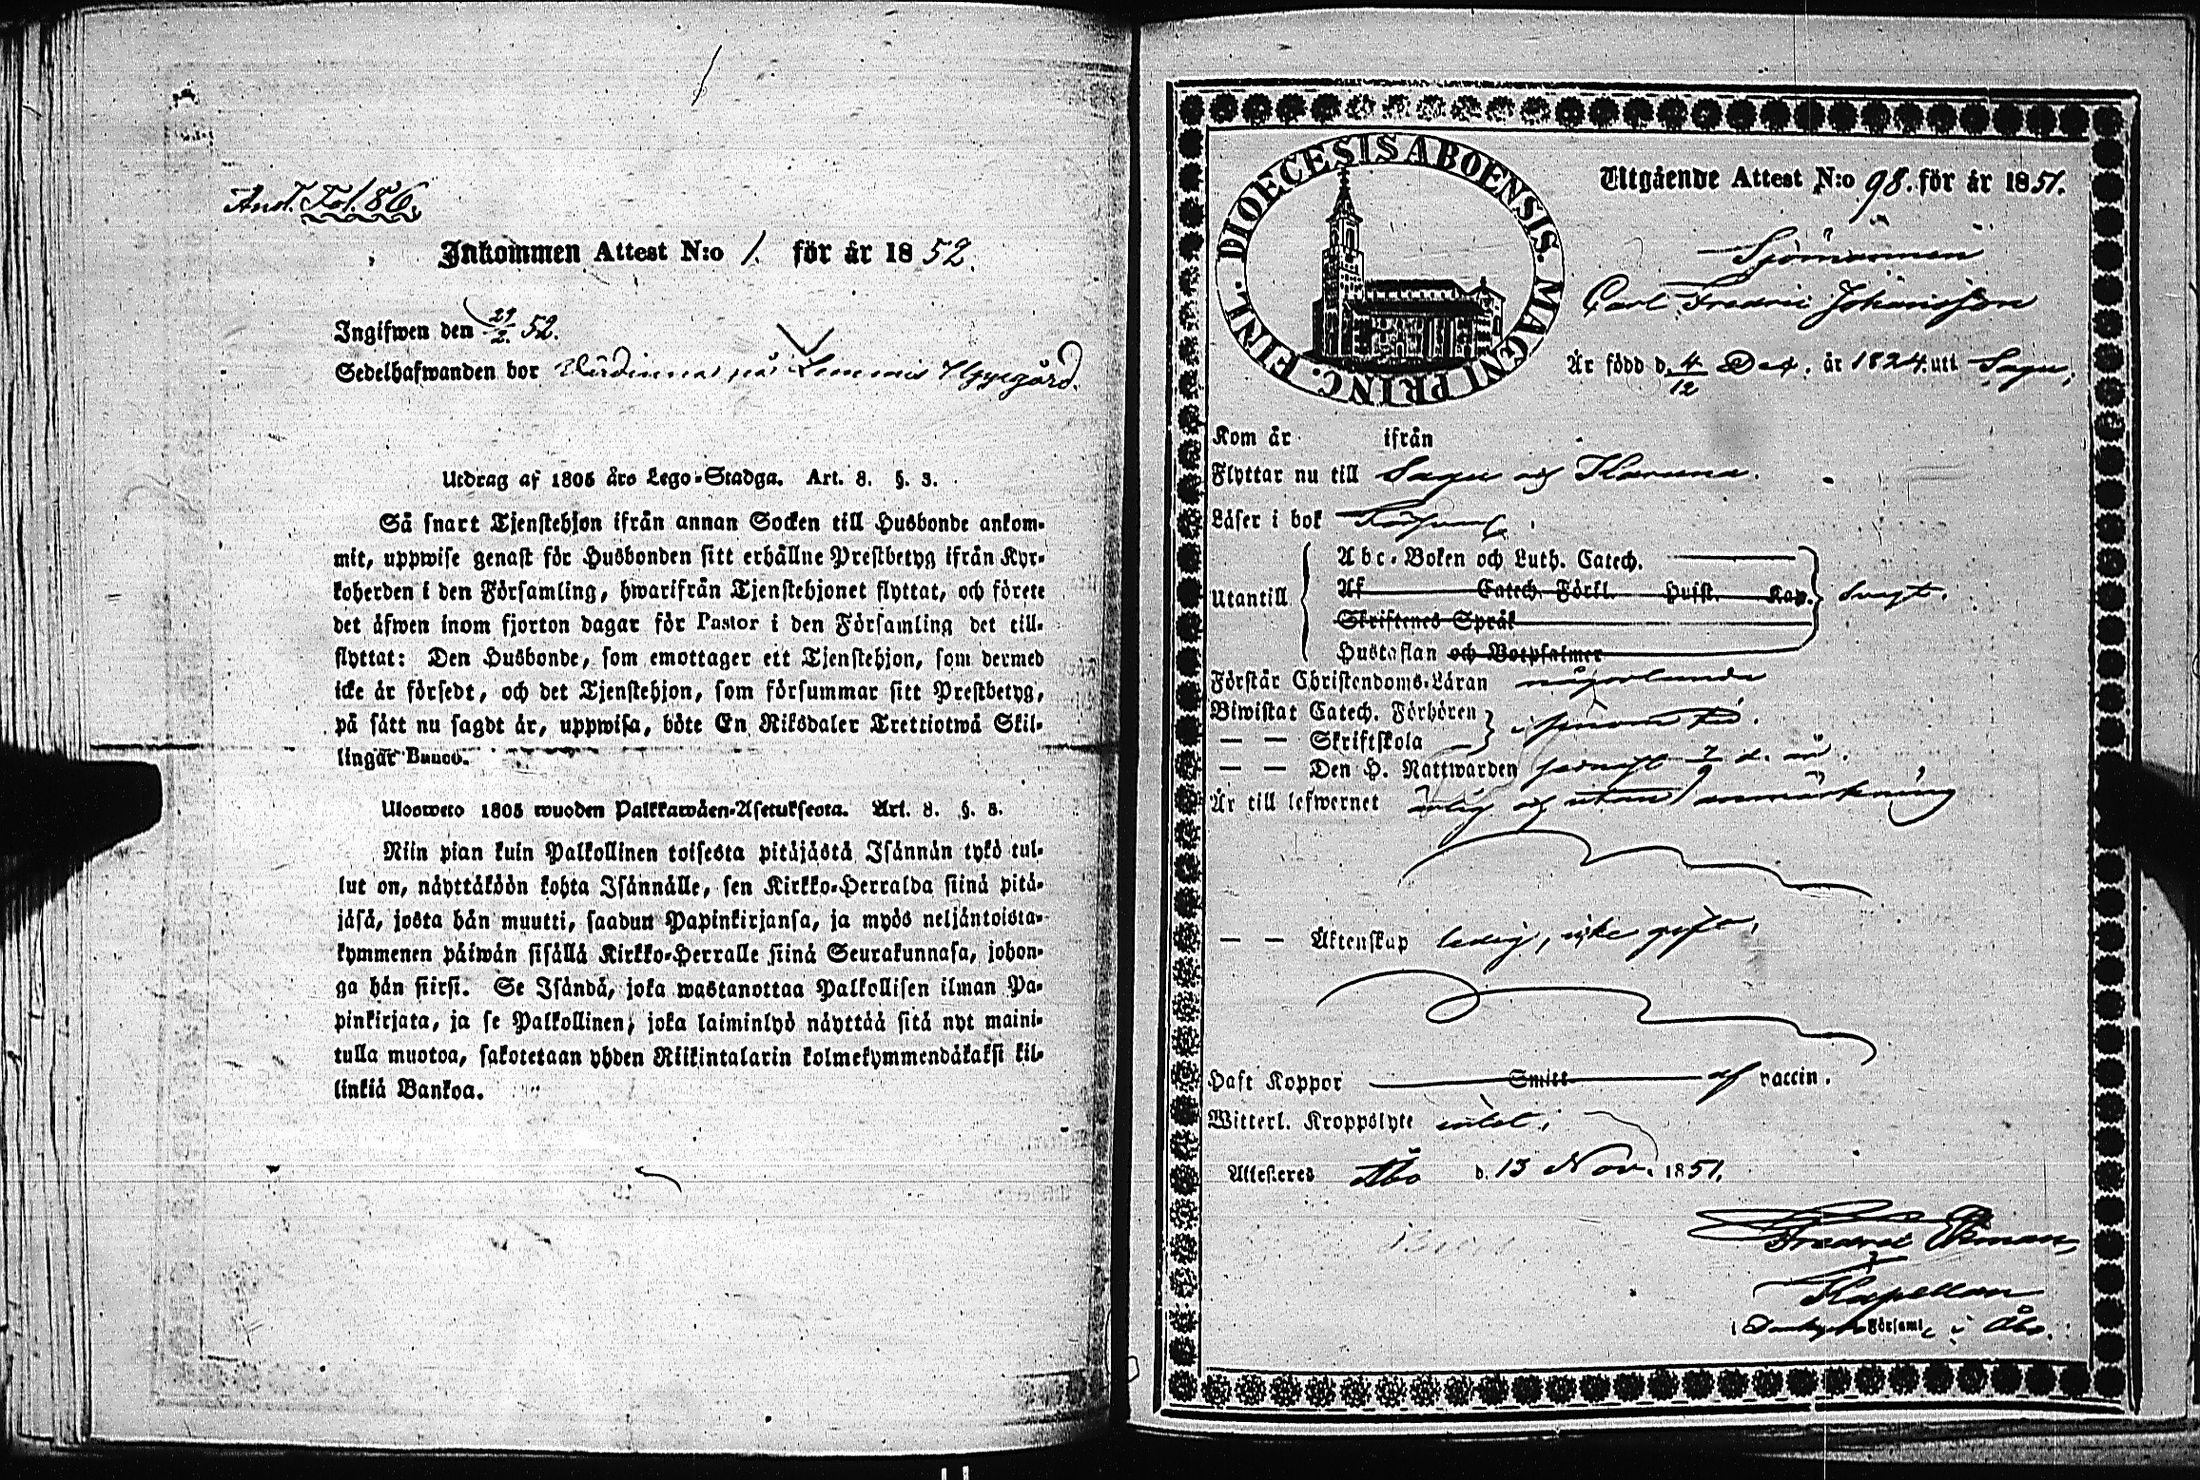 And. Fol. 86.
Inkommen Attest N:o 1. för år 1852.
Ingifwen den 29/2. 52.
Sedelhafwanden bor Wärdinnas på Lemmis Nygård.
Utdrag af 1805 års Lego-Stadga. Art. 8. §. 3.
Så snart Tjenstehjon ifrån annan Socken till Husbonde ankom-
mit, uppwise genast för Husbonden sitt erhållne Prestbetyg ifrån Kyr-
koherden i den Församling, hwarifrån Tjenstehjonet flyttat, och förete
det åfwen inom fjorton dagar för Pastor i den Församling det till-
flyttat: Den Husbonde, som emottager ett Tjenstehjon, som dermed
icke är försedt, och det Tjenstehjon, som försummar sitt Prestbetyg,
på sått nu sagdt är, uppwisa, böte En Riksdaler Trettiotwå Skil-
lingar Banco.
Ulosweto 1805 wuoden Palkkawäen-Asetuksesta. Art. 8. §. 3.
Niin pian kuin Palkollinen toisesta pitäjästä Isännän tykö tul-
lut on, näyttäköön kohta Isännälle, sen Kirkko-Herralda siinä pitä-
jäsä, josta hän muutti, saadun Papinkirjansa, ja myös neljäntoista-
kymmenen päiwän sisällä Kirkko-Herralle siinä Seurakunnasa, johon-
ga hän siirsi. Se Isändä, joka wastanottaa Palkollisen ilman Pa-
pinkirjata, ja se Palkollinen, joka laiminlyö näyttää sitä nyt maini-
tulla muotoa, sakotetaan yhden Riikintalarin kolmekymmendäkaksi kil-
linkiä Bankoa.
DIOECESIS ABOENSIS. MAGNI PRINC. FINL.
Utgående Attest N:o 98. för år 1851.
Sjömannen
Carl Fredric Johansson
Är född d. 4/12 Dec. år 1824. utt Sagu,
Kom år ifrån
Flyttar nu till Sagu og Karuna.
Läser i bok
Abc-Boken och Luth. Catech.
Utantill Af Catech. Förkl. Hufst. Kap. svagt.
Skriftenes Språk
Hustaflan och Botpsalmer
Förstår Christendoms-Läran någorlunda
Biwistat Catech. Förhören
— — Skriftskola
— — Den H. Nattwarden d. år.
Är till lefwernet ärlig og utan anmärkning
— — Äktenskap ledig, icke gift.
Haft Koppor Smitt. af vaccin.
Witterl. Kroppslyte intet.
Attesteres Åbo d. 13 Nov. 1851.
Fredric Ekman,
Kapellan
i Församl i Åbo.